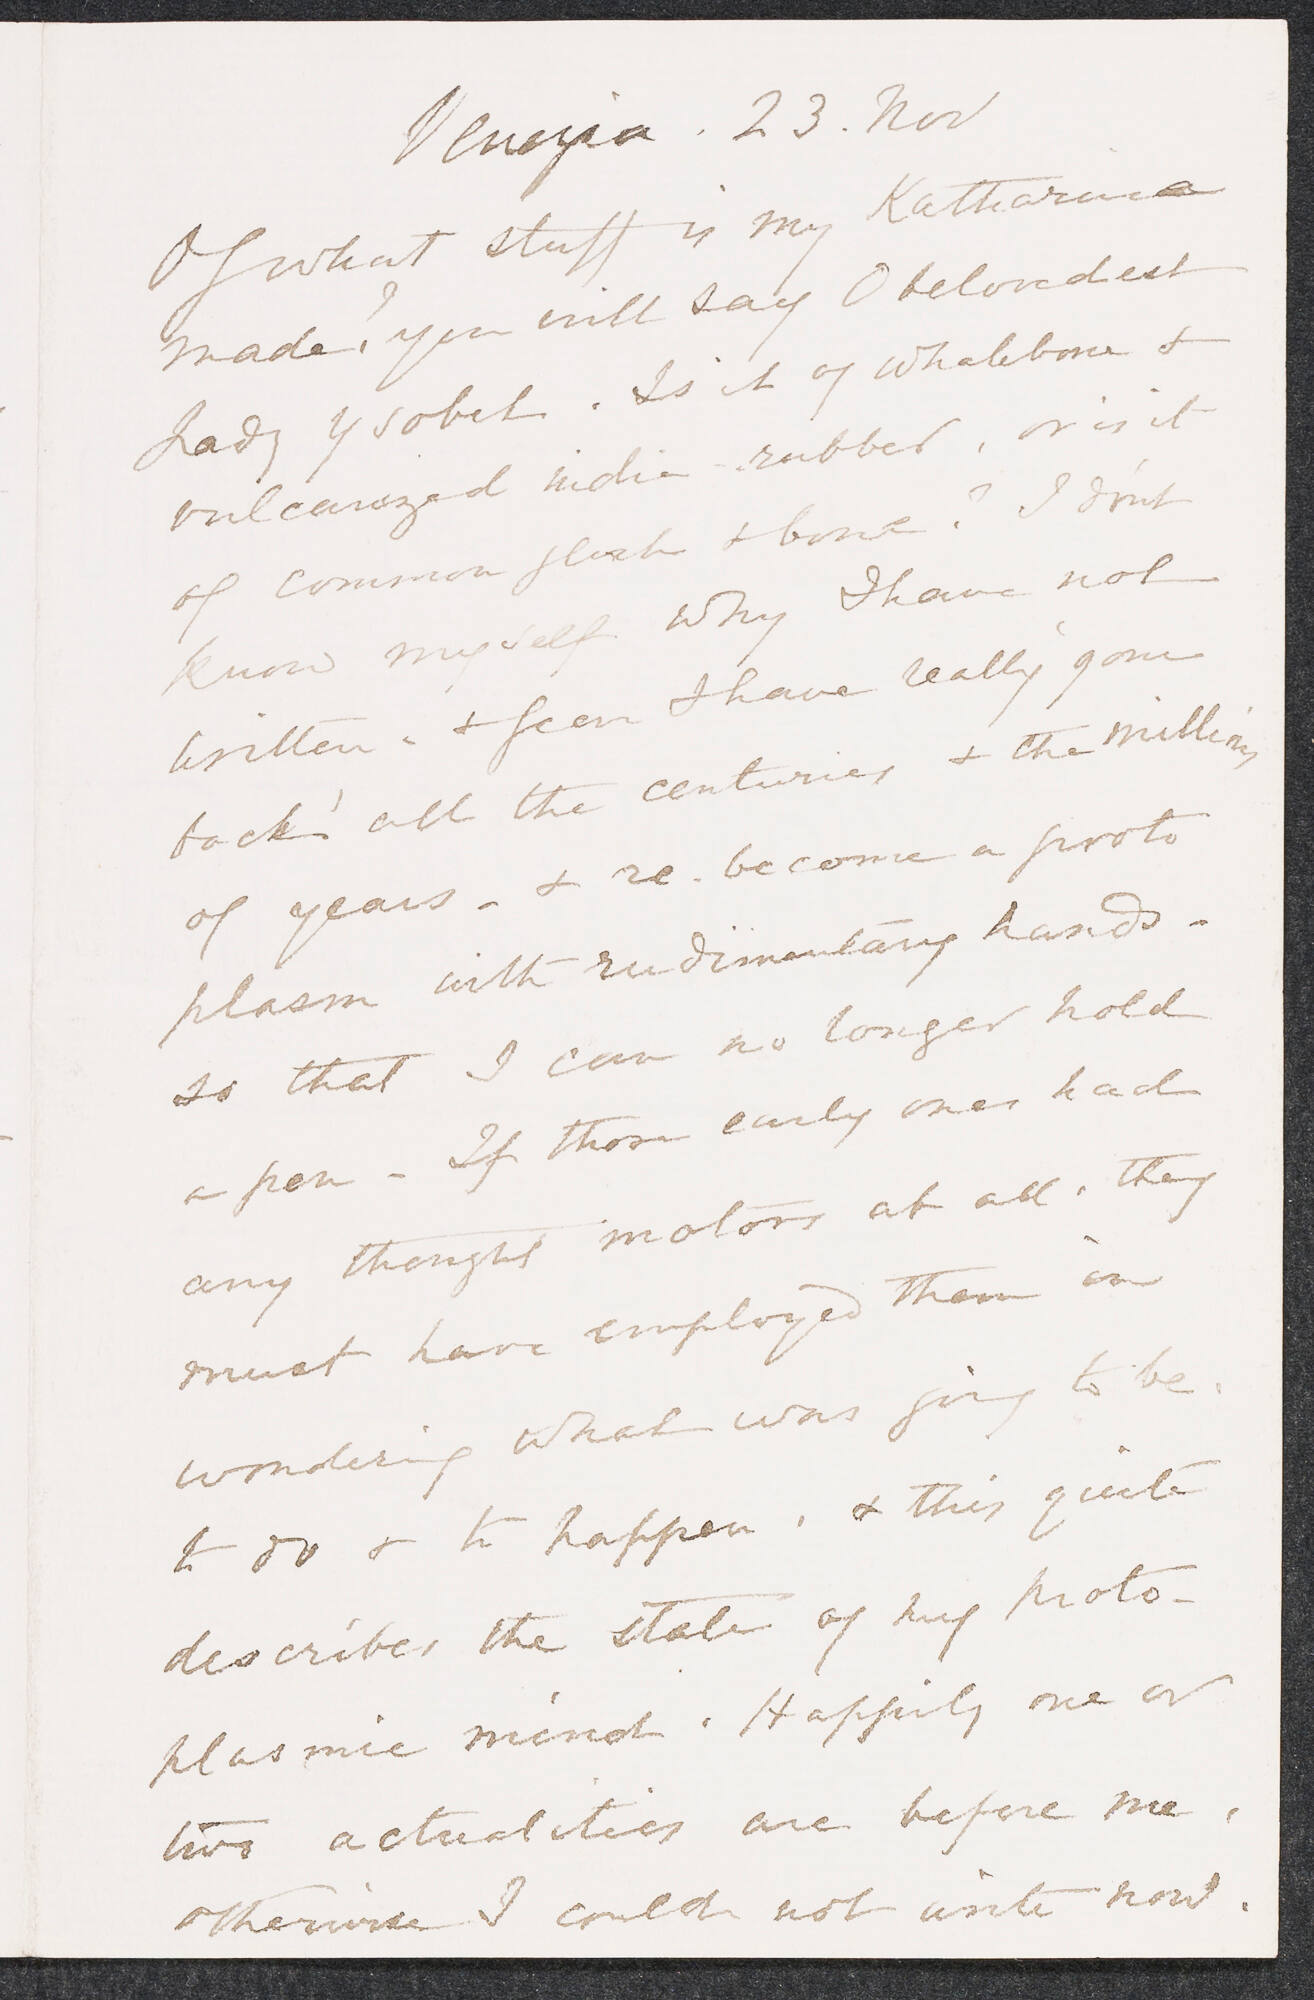 Venezia. 23. Nov
Of what stuff is my Katharine
made? you will say O belovedest
Lady Ysobel. Is it of whalebone &
vulcanized india-rubber, or is it
of common flesh & bone? I don't
know myself why I have not
written. & feen I have really gone
back all the centuries & the millions
of years - & re-become a proto
plasm with rudimentary hands -
so that I can no longer hold
a pen - If those early ones had
any thought motors at all, they
must have employed them in
wondering what was going to be.
to do & to happen, & this quite
describes the state of my proto-
plasmic mind. Happily one or
two actualities are before me,
otherwise I could not write now.